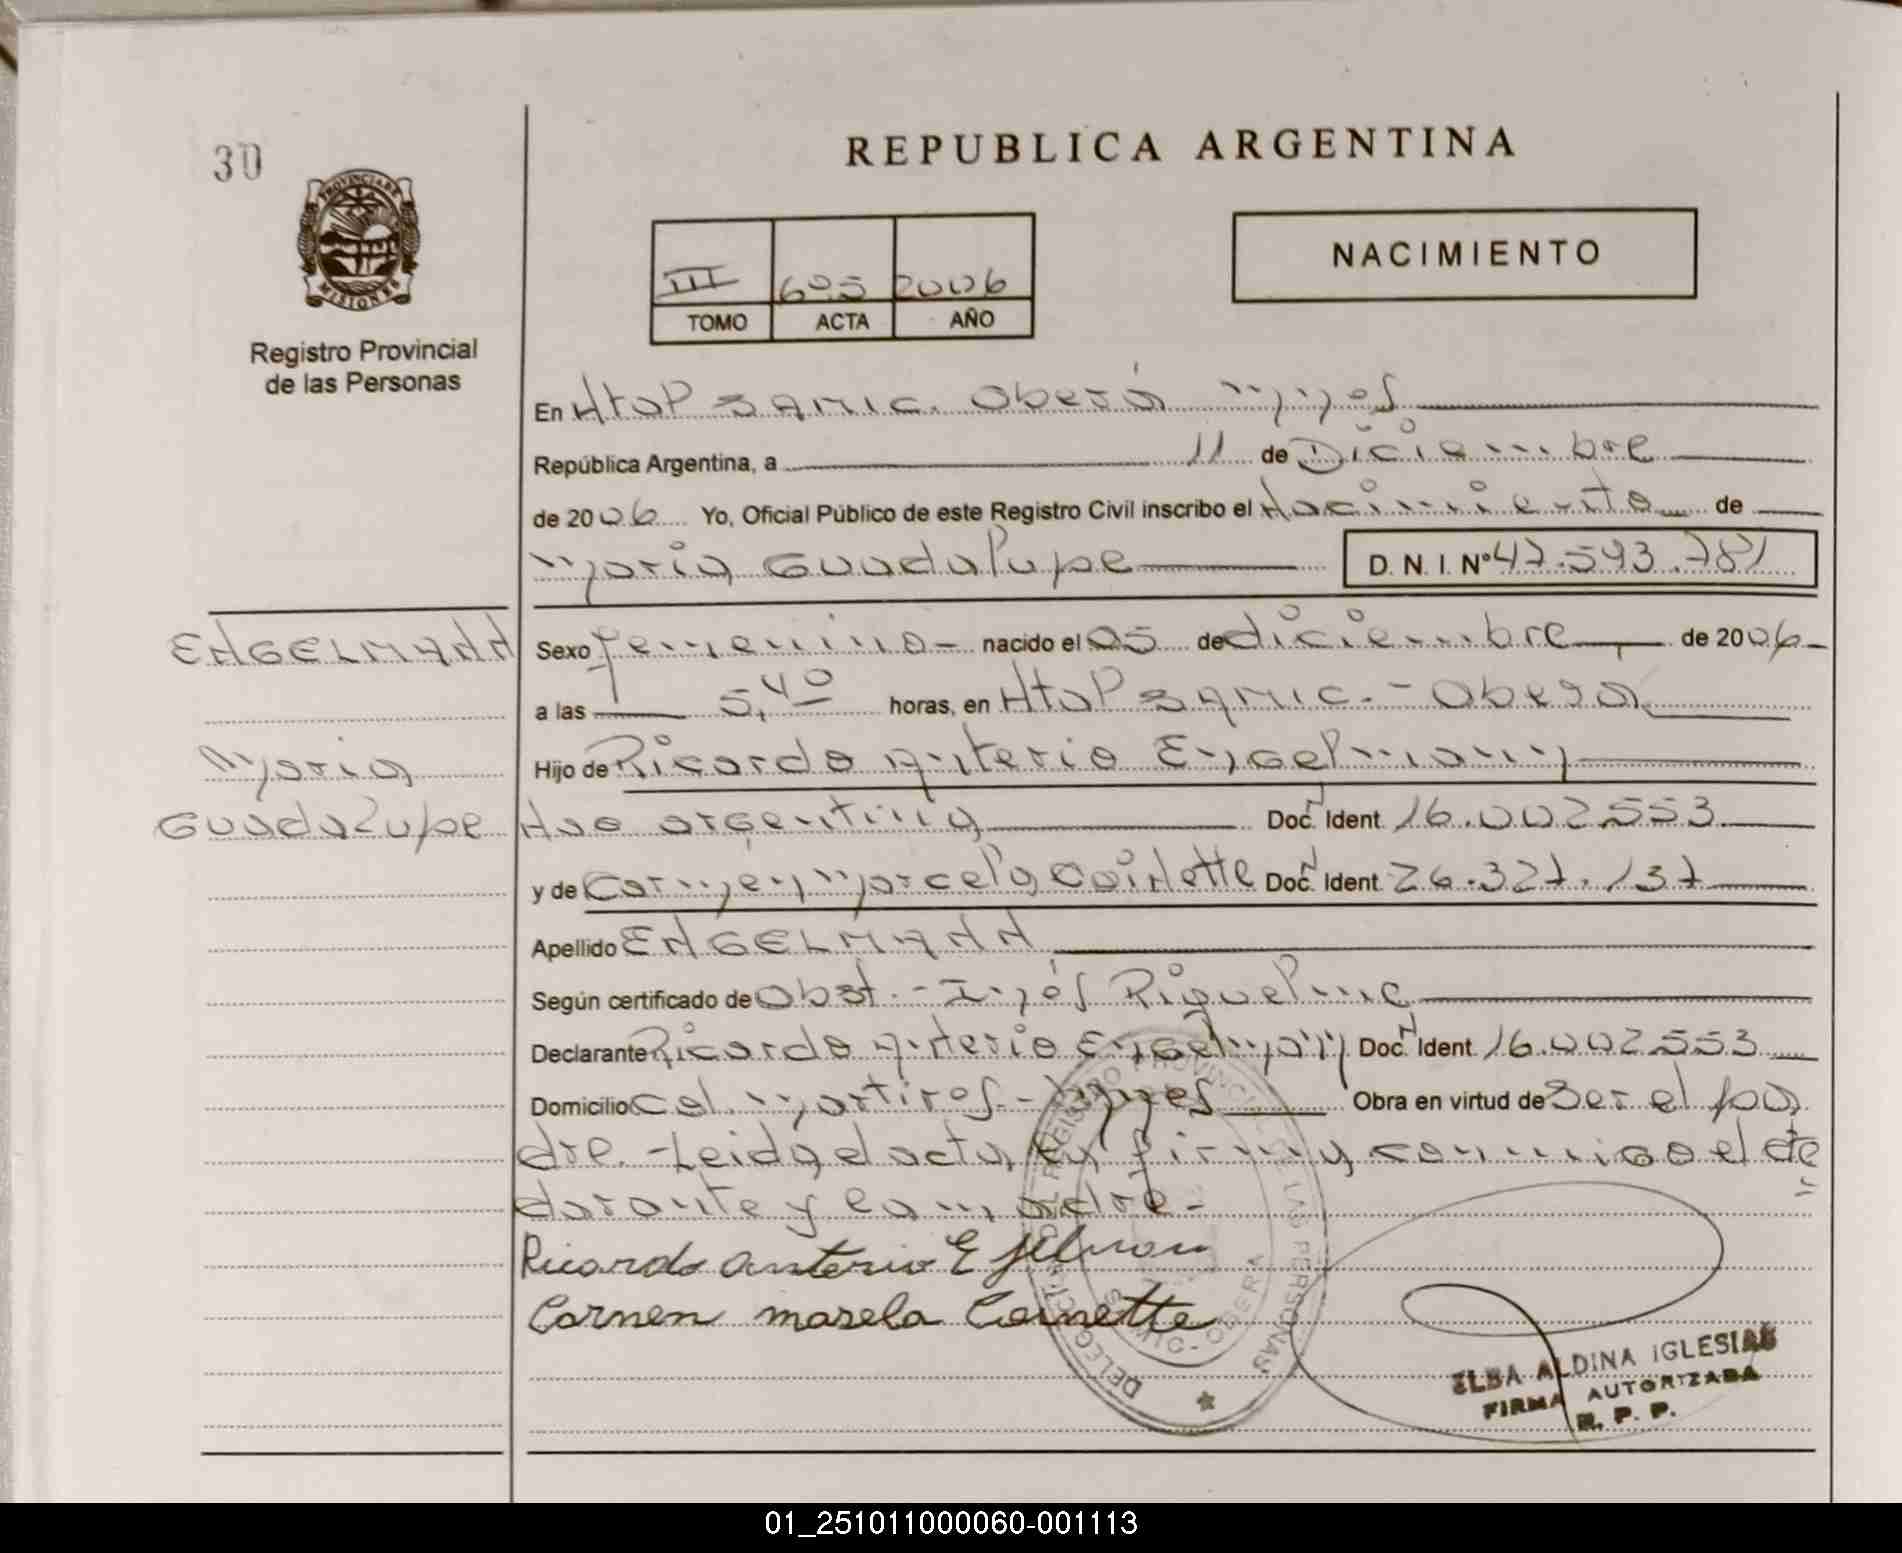 30
PROVINCIA DE
MISIONES
Registro Provincial
de las Personas
REPUBLICA ARGENTINA
III 605 2006
TOMO ACTA AÑO
NACIMIENTO
En Htal SAMIC. Oberá Mnes
República Argentina, a 11 de Diciembre
de 2006 Yo, Oficial Público de este Registro Civil inscribo el Nacimiento de
María Guadalupe D. N. I. Nº 47.593.781
ENGELMANN
Sexo femenino - nacido el 05 de diciembre de 2006-
a las 5,40 horas, en Htal SAMIC.- Oberá
María
Guadalupe
Hijo de Ricardo Anterio Engelmann
Nac argentina Doc. Ident. 16.002.553
y de Carmen Marcela Coinette Doc. Ident. 26.327.137
Apellido ENGELMANN
Según certificado de Obst.- Inés Riquelme
Declarante Ricardo Anterio Engelmann Doc. Ident. 16.002.553
Domicilio Col. Martires - Mnes Obra en virtud de Ser el pa
dre. - Leida el acta, la firman conmigo el de
darante y la madre -
Ricardo Anterio
Carmen marela Coinette
DELEGACION REGISTRO PROVINCIAL DE LAS PERSONAS
SAMIC - OBERA
ELBA ALDINA IGLESIAS
FIRMA AUTORIZADA
R. P. P.
01_251011000060-001113